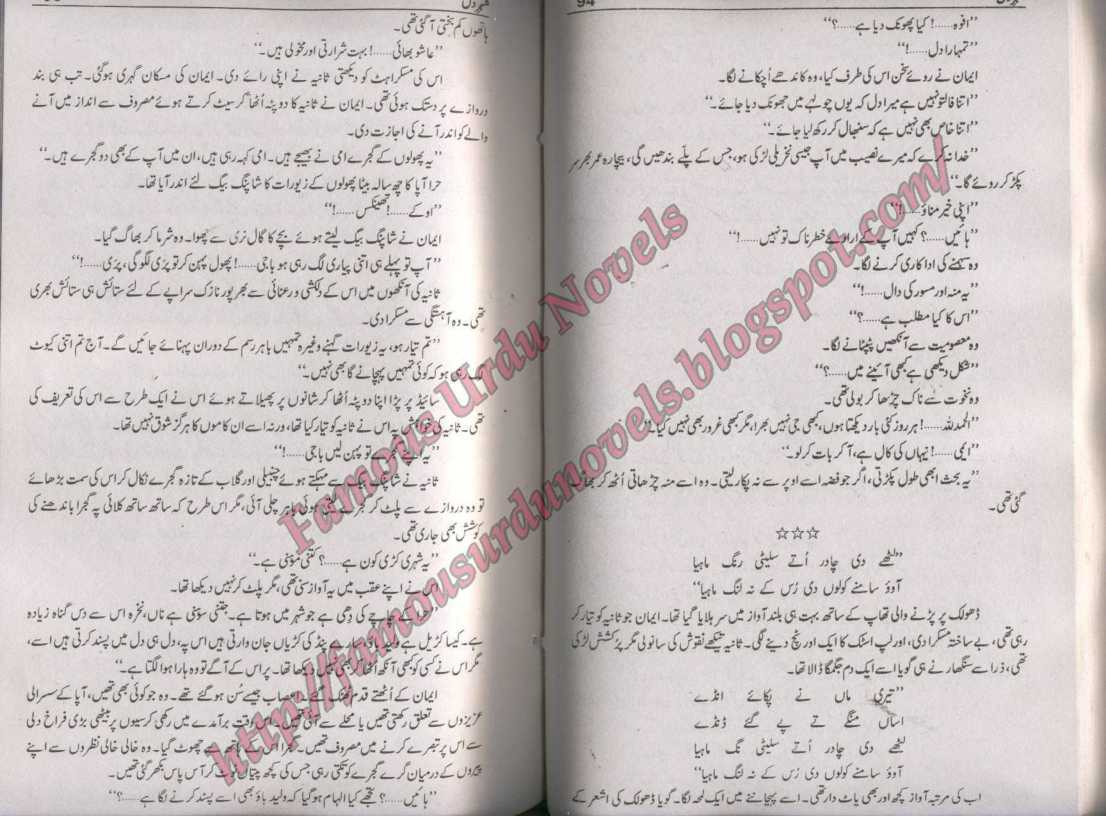 94
”افوہ.....! کیا پھونک دیا ہے.....؟“
”تمہارا دل.....!“
ایمان نے روئے سخن اس کی طرف کیا، وہ کاندھے اُچکانے لگا۔
”اتنا فالتو نہیں ہے میرا دل کہ یوں چولہے میں جھونک دیا جائے۔“
”اتنا خاص بھی نہیں ہے کہ سنبھال کر رکھ لیا جائے۔“
”خدا نہ کرے کہ میرے نصیب میں آپ جیسی نخریلی لڑکی ہو، جس کے پلے بندھیں گی، بیچارہ عمر بھر سر
پکڑ کر روئے گا۔“
”اپنی خیر مناؤ.....!“
”ہائیں.....؟ کہیں آپ کے ارادے خطرناک تو نہیں.....!“
وہ سہمنے کی اداکاری کرنے لگا۔
”یہ منہ اور مسور کی دال.....!“
”اس کا کیا مطلب ہے.....؟“
وہ معصومیت سے آنکھیں پٹپٹانے لگا۔
”شکل دیکھی ہے کبھی آئینے میں.....؟“
وہ نخوت سے ناک چڑھا کر بولی تھی۔
”الحمدللہ.....! ہر روز کئی بار دیکھتا ہوں، کبھی جی نہیں بھرا، مگر کبھی غرور بھی نہیں کیا۔“
”ایمی.....! نیہاں کی کال ہے، آ کر بات کر لو۔“
”یہ بحث ابھی طول پکڑتی، اگر جو فضہ اسے اوپر سے نہ پکار لیتی۔ وہ اسے منہ چڑھاتی اُٹھ کر بھاگ
گئی تھی۔
☆☆☆
”لٹھے دی چادر اُتے سلیٹی رنگ ماہیا
آوؤ سامنے کولوں دی رُس کے نہ لنگ ماہیا“
ڈھولک پر پڑنے والی تھاپ کے ساتھ بہت ہی بلند آواز میں سر ہلایا گیا تھا۔ ایمان جو ثانیہ کو تیار کر
رہی تھی، بے ساختہ مسکرا دی، اور لپ اسٹک کا ایک اور ٹچ دینے لگی۔ ثانیہ تیکھے نقوش کی سانولی مگر پُرکشش لڑکی
تھی، ذرا سے سنگھار نے ہی گویا اسے ایک دم جگمگا ڈالا تھا۔
”تیری ماں نے پکائے انڈے
اساں منگے تے پے گئے ڈنڈے
لٹھے دی چادر اُتے سلیٹی رنگ ماہیا
آوؤ سامنے کولوں دی رُس کے نہ لنگ ماہیا
اب کی مرتبہ آواز کچھ اور بھی پاٹ دار تھی۔ اسے پہچاننے میں ایک لمحہ لگا۔ گویا ڈھولک کی اشعر کے
ہاتھوں کم بختی آ گئی تھی۔
”عاشو بھائی.....! بہت شرارتی اور مخولی ہیں۔“
اس کی مسکراہٹ کو دیکھتی ثانیہ نے اپنی رائے دی۔ ایمان کی مسکان گہری ہو گئی۔ تب ہی بند
دروازے پر دستک ہوئی تھی۔ ایمان نے ثانیہ کا دوپٹہ اُٹھا کر سیٹ کرتے ہوئے مصروف سے انداز میں آنے
والے کو اندر آنے کی اجازت دی۔
”یہ پھولوں کے گجرے امی نے بھیجے ہیں۔ امی کہہ رہی ہیں، ان میں آپ کے بھی دو گجرے ہیں۔“
حرا آپا کا چھ سالہ بیٹا پھولوں کے زیورات کا شاپنگ بیگ لئے اندر آیا تھا۔
”اوکے.....! تھینکس.....!“
ایمان نے شاپنگ بیگ لیتے ہوئے بچے کا گال نرمی سے چھوا۔ وہ شرما کر بھاگ گیا۔
”آپ تو پہلے ہی اتنی پیاری لگ رہی ہو باجی.....! پھول پہن کر تو پری لگو گی، پری.....!“
ثانیہ کی آنکھوں میں اس کے دلکشی و رعنائی سے بھرپور نازک سراپے کے لئے ستائش ہی ستائش بھری
تھی۔ وہ آہستگی سے مسکرا دی۔
”تم تیار ہو، یہ زیورات گہنے وغیرہ تمہیں باہر رسم کے دوران پہنائے جائیں گے۔ آج تم اتنی کیوٹ
لگ رہی ہو کہ کوئی تمہیں پہچانے گا بھی نہیں۔“
سائیڈ پر پڑا اپنا دوپٹہ اُٹھا کر شانوں پر پھیلاتے ہوئے اس نے ایک طرح سے اس کی تعریف کی
تھی۔ ثانیہ کی خواہش پہ اس نے ثانیہ کو تیار کیا تھا، ورنہ اسے ان کاموں کا ہرگز شوق نہیں تھا۔
”یہ اپنے گجرے تو پہن لیں باجی.....!“
ثانیہ نے شاپنگ بیگ سے مہکتے ہوئے چنبیلی اور گلاب کے تازہ گجرے نکال کر اس کی سمت بڑھائے
تو وہ دروازے سے پلٹ کر گجرے لیتی ہوئی باہر چلی آئی، مگر اس طرح کہ ساتھ ساتھ کلائی پہ گجرا باندھنے کی
کوشش بھی جاری تھی۔
”یہ شہری کڑی کون ہے.....؟ کتنی سوہنی ہے۔“
اس نے اپنے عقب میں یہ آواز سنی تھی، مگر پلٹ کر نہیں دیکھا تھا۔
چاچے کی دھی ہے جو شہر میں ہوتا ہے۔ جتنی سوہنی ہے ناں، نخرہ اس سے دس گناہ زیادہ
ہے۔ کیسا کڑیل ہے ولید باؤ، سارے پنڈ کی کڑیاں جان وارتی ہیں اس پہ، دل ہی دل میں پسند کرتی ہیں اسے،
مگر اس نے کسی کو بھی آنکھ اُٹھا کر بھی نہیں دیکھا تھا۔ پر اس کے آگے تو وہ ہارا ہوا لگتا ہے۔“
ایمان کے اُٹھتے قدم ٹھٹک گئے۔ اعصاب جیسے سُن ہو گئے تھے۔ وہ جو کوئی بھی تھیں، آپا کے سسرالی
عزیزوں سے تعلق رکھتی تھیں یا محلے سے آئی تھیں۔ اس وقت برآمدے میں رکھی کرسیوں پر بیٹھی بڑی فراخ دلی
سے اس پر تبصرے کرنے میں مصروف تھیں۔ گجرا اس کے ہاتھ سے چھوٹ گیا۔ وہ خالی خالی نظروں سے اپنے
پیروں کے درمیان گرے گجرے کو تکتی رہی جس کی کچھ پتیاں ٹوٹ کر آس پاس بکھر گئی تھیں۔
”ہائیں.....؟ تجھے کیا الہام ہو گیا کہ ولید باؤ بھی اسے پسند کرنے لگا ہے.....؟“
Famous Urdu Novels
http://famousurdunovels.blogspot.com/